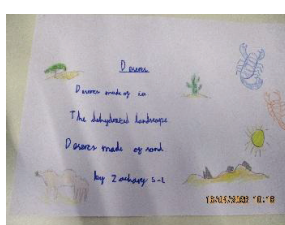 Deserts
Deserts made of
The dehydrated landscape
Deserts made of sand
by Zachary 5-2